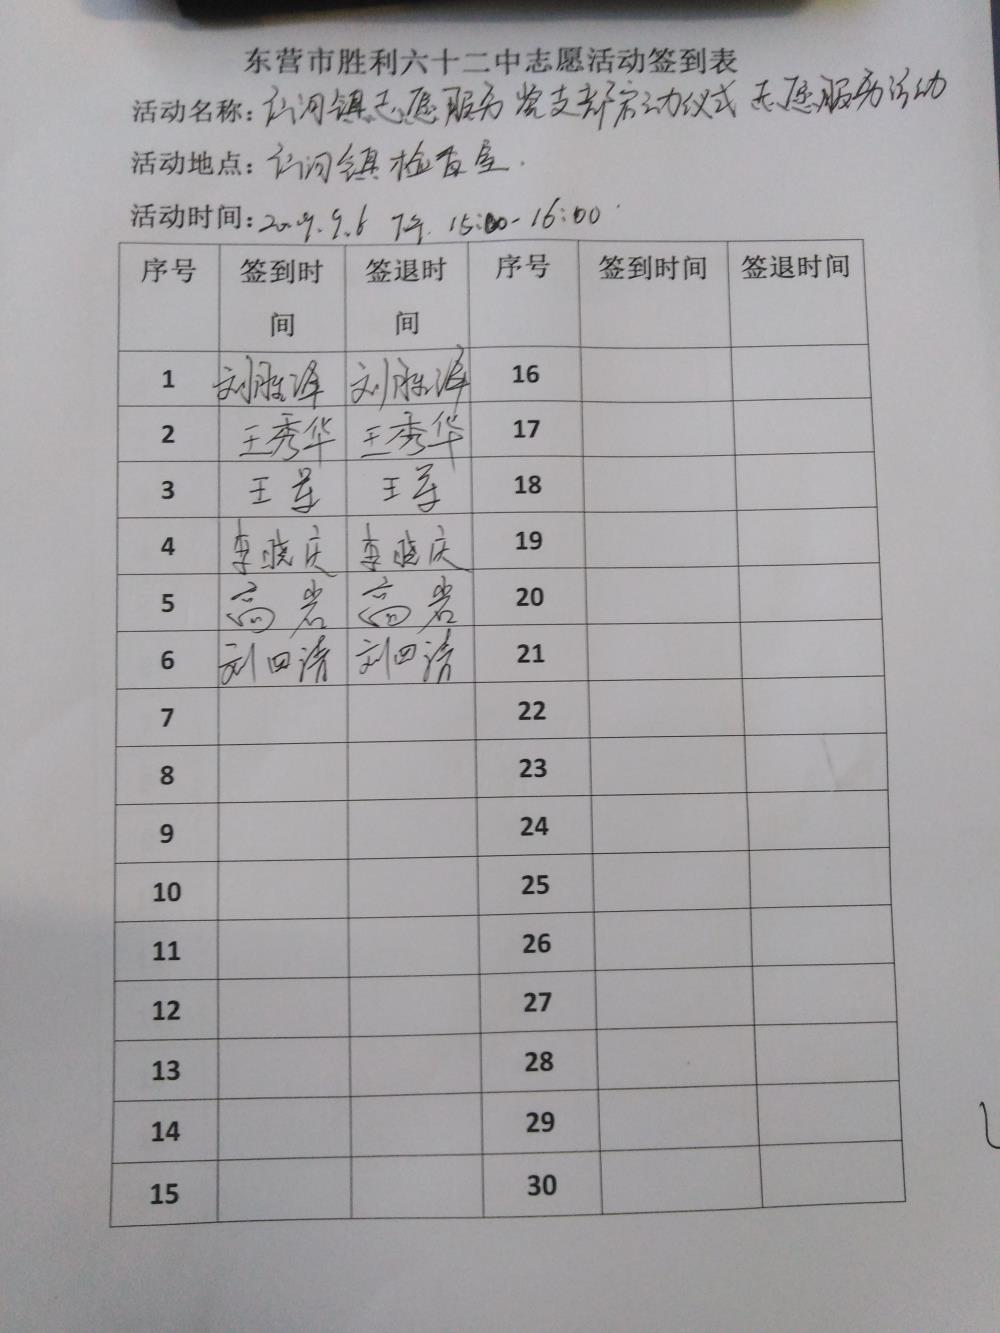 东营市胜利六十二中志愿活动签到表
活动名称：河镇志愿服务党支部启动仪式 志愿服务活动
活动地点：河镇检查室.
活动时间：2019.9.6 下午 15:00-16:00
序号 签到时间 签退时间 序号 签到时间 签退时间
1 刘胜泽 刘胜泽 16
2 王秀华 王秀华 17
3 王军 王军 18
4 李晓庆 李晓庆 19
5 高岩 高岩 20
6 刘四清 刘四清 21
7 22
8 23
9 24
10 25
11 26
12 27
13 28
14 29
15 30